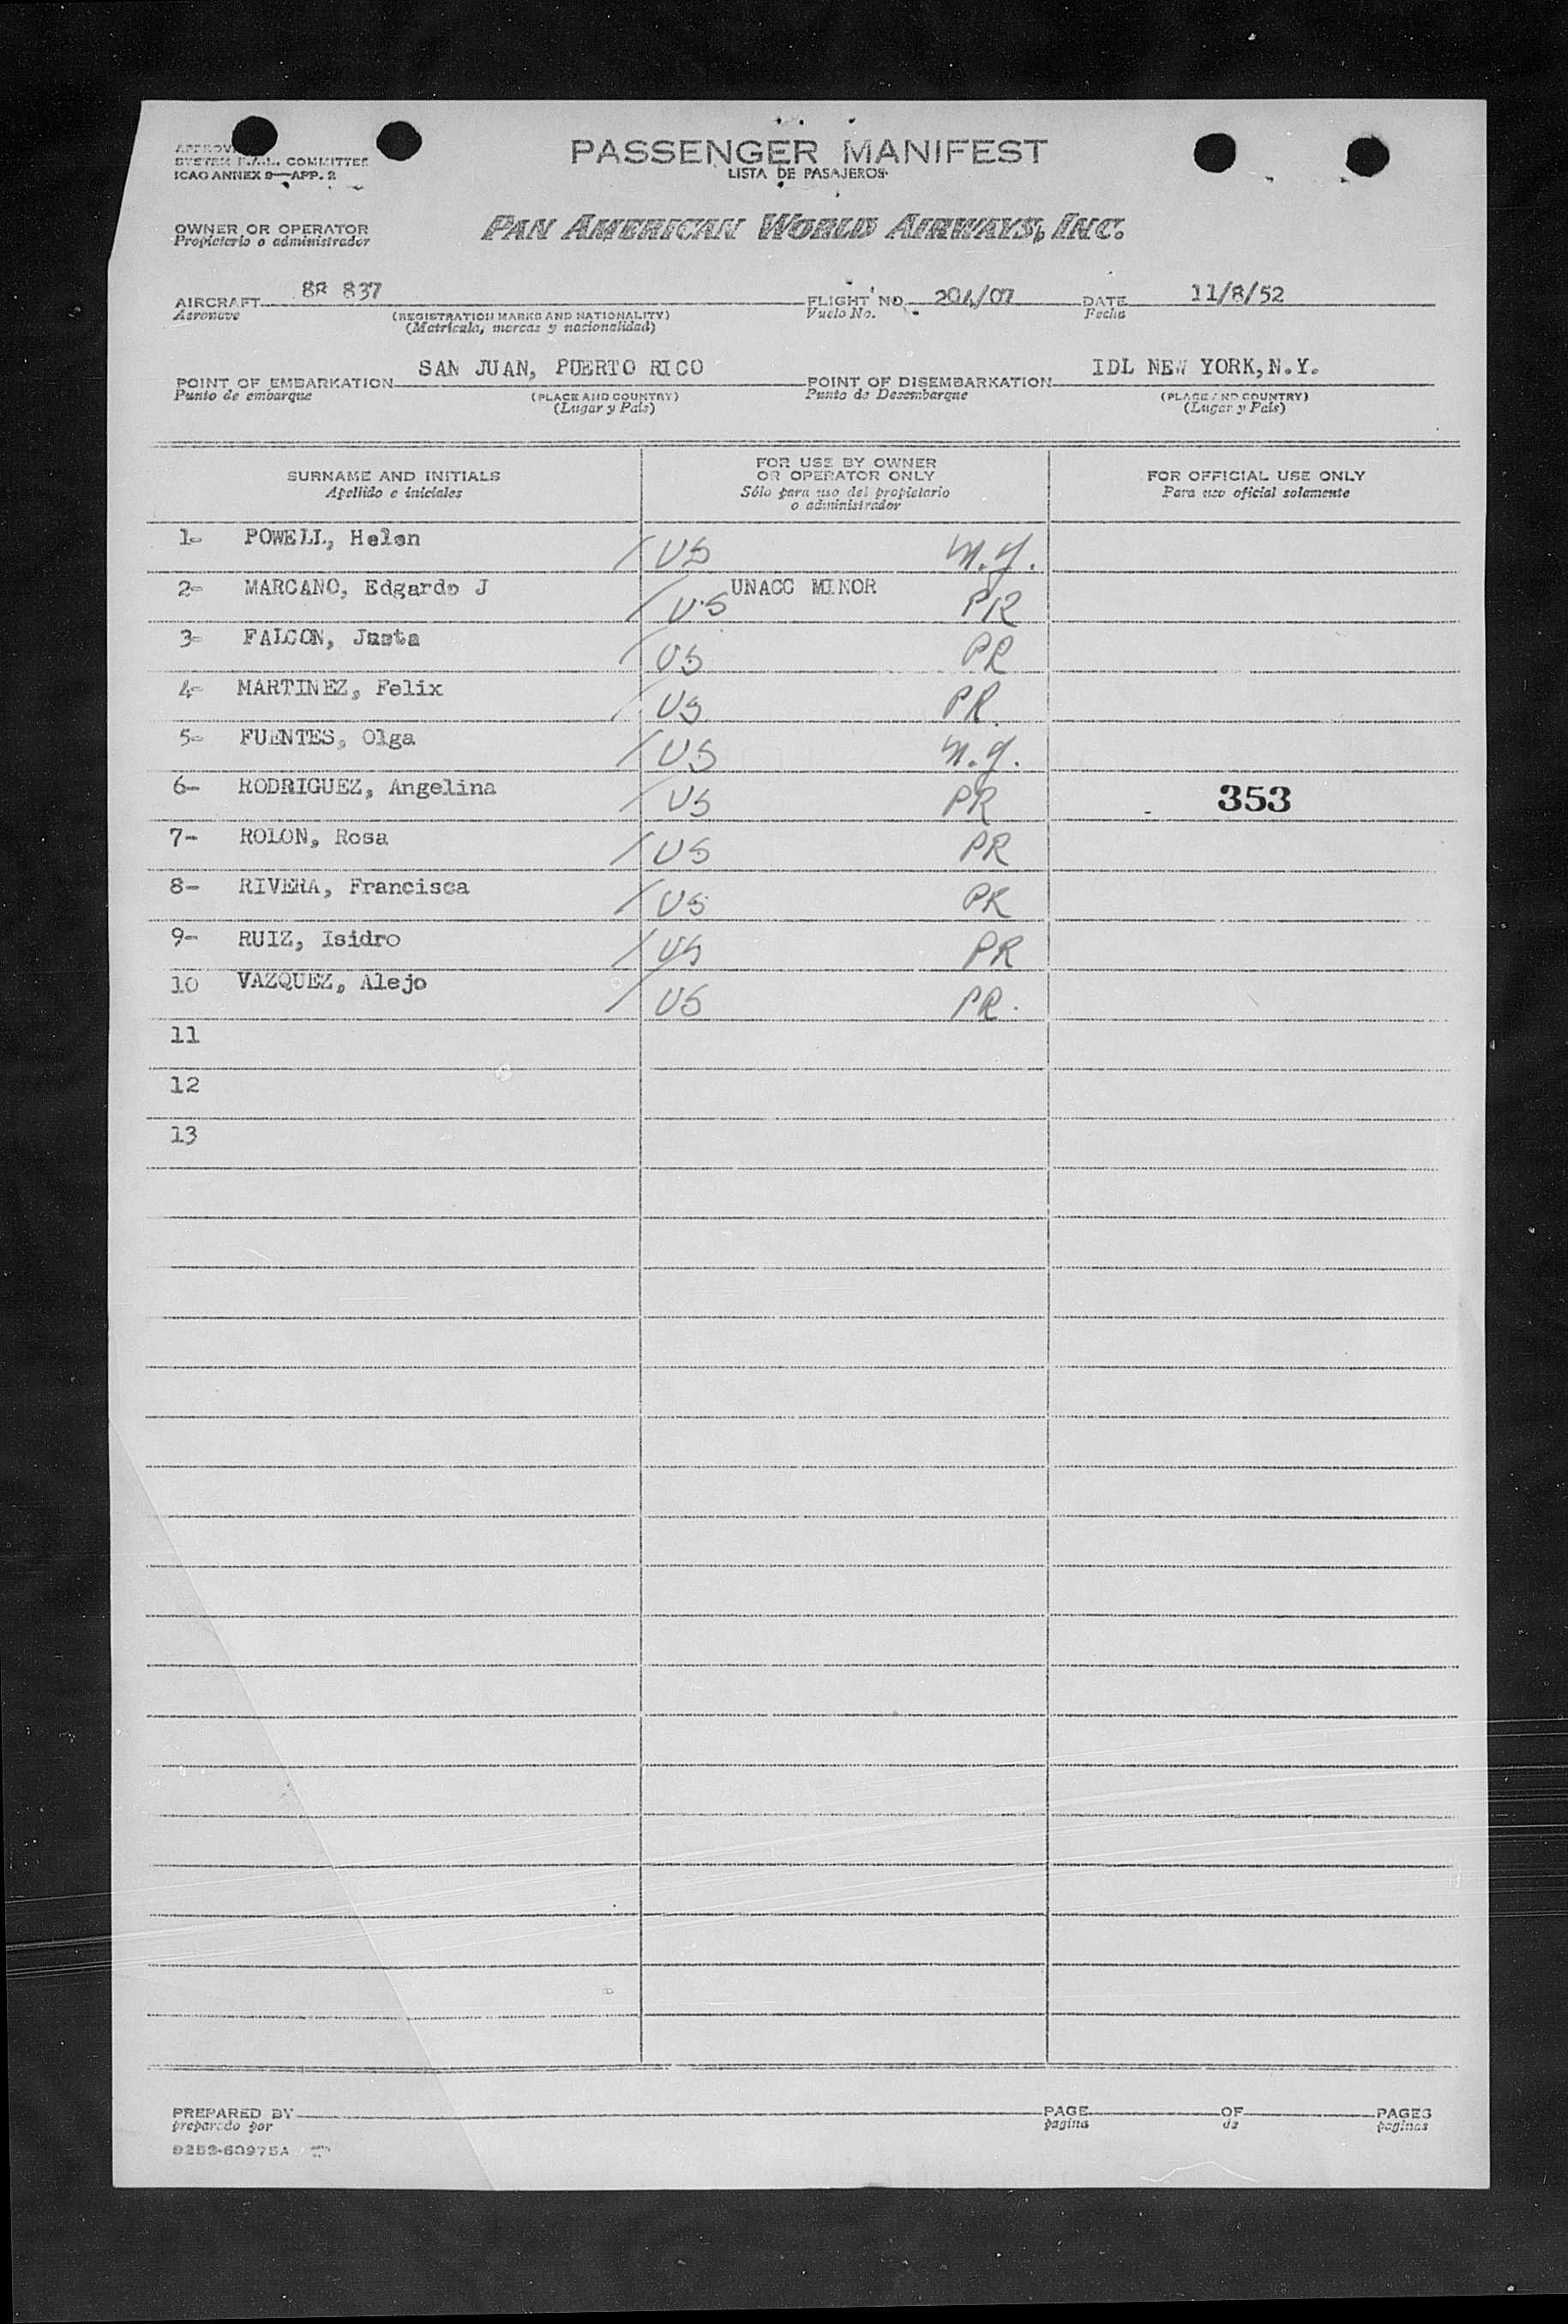 SYSTEM F.A.L. COMMITTEE
ICAO ANNEX 9—APP. 2
PASSENGER MANIFEST
LISTA DE PASAJEROS
OWNER OR OPERATOR
Propietario o administrador
PAN AMERICAN WORLD AIRWAYS, INC.
AIRCRAFT 88 837
Aeronave
(REGISTRATION MARKS AND NATIONALITY)
(Matricula, marcas y nacionalidad)
FLIGHT NO. 204/07
Vuelo No.
DATE 11/8/52
Fecha
POINT OF EMBARKATION SAN JUAN, PUERTO RICO
Punto de embarque
(PLACE AND COUNTRY)
(Lugar y País)
POINT OF DISEMBARKATION IDL NEW YORK, N.Y.
Punto de Desembarque
(PLACE AND COUNTRY)
(Lugar y País)
SURNAME AND INITIALS
Apellido e iniciales
FOR USE BY OWNER
OR OPERATOR ONLY
Sólo para uso del propietario
o administrador
FOR OFFICIAL USE ONLY
Para uso oficial solamente
1- POWELL, Helen / US N.Y.
2- MARCANO, Edgardo J / US UNACC MINOR PR
3- FALCON, Justa / US PR
4- MARTINEZ, Felix / US PR
5- FUENTES, Olga / US N.Y.
6- RODRIGUEZ, Angelina / US PR 353
7- ROLON, Rosa / US PR
8- RIVERA, Francisca / US PR
9- RUIZ, Isidro / US PR
10 VAZQUEZ, Alejo / US PR.
11
12
13
PREPARED BY
preparado por
PAGE OF PAGES
pagina de paginas